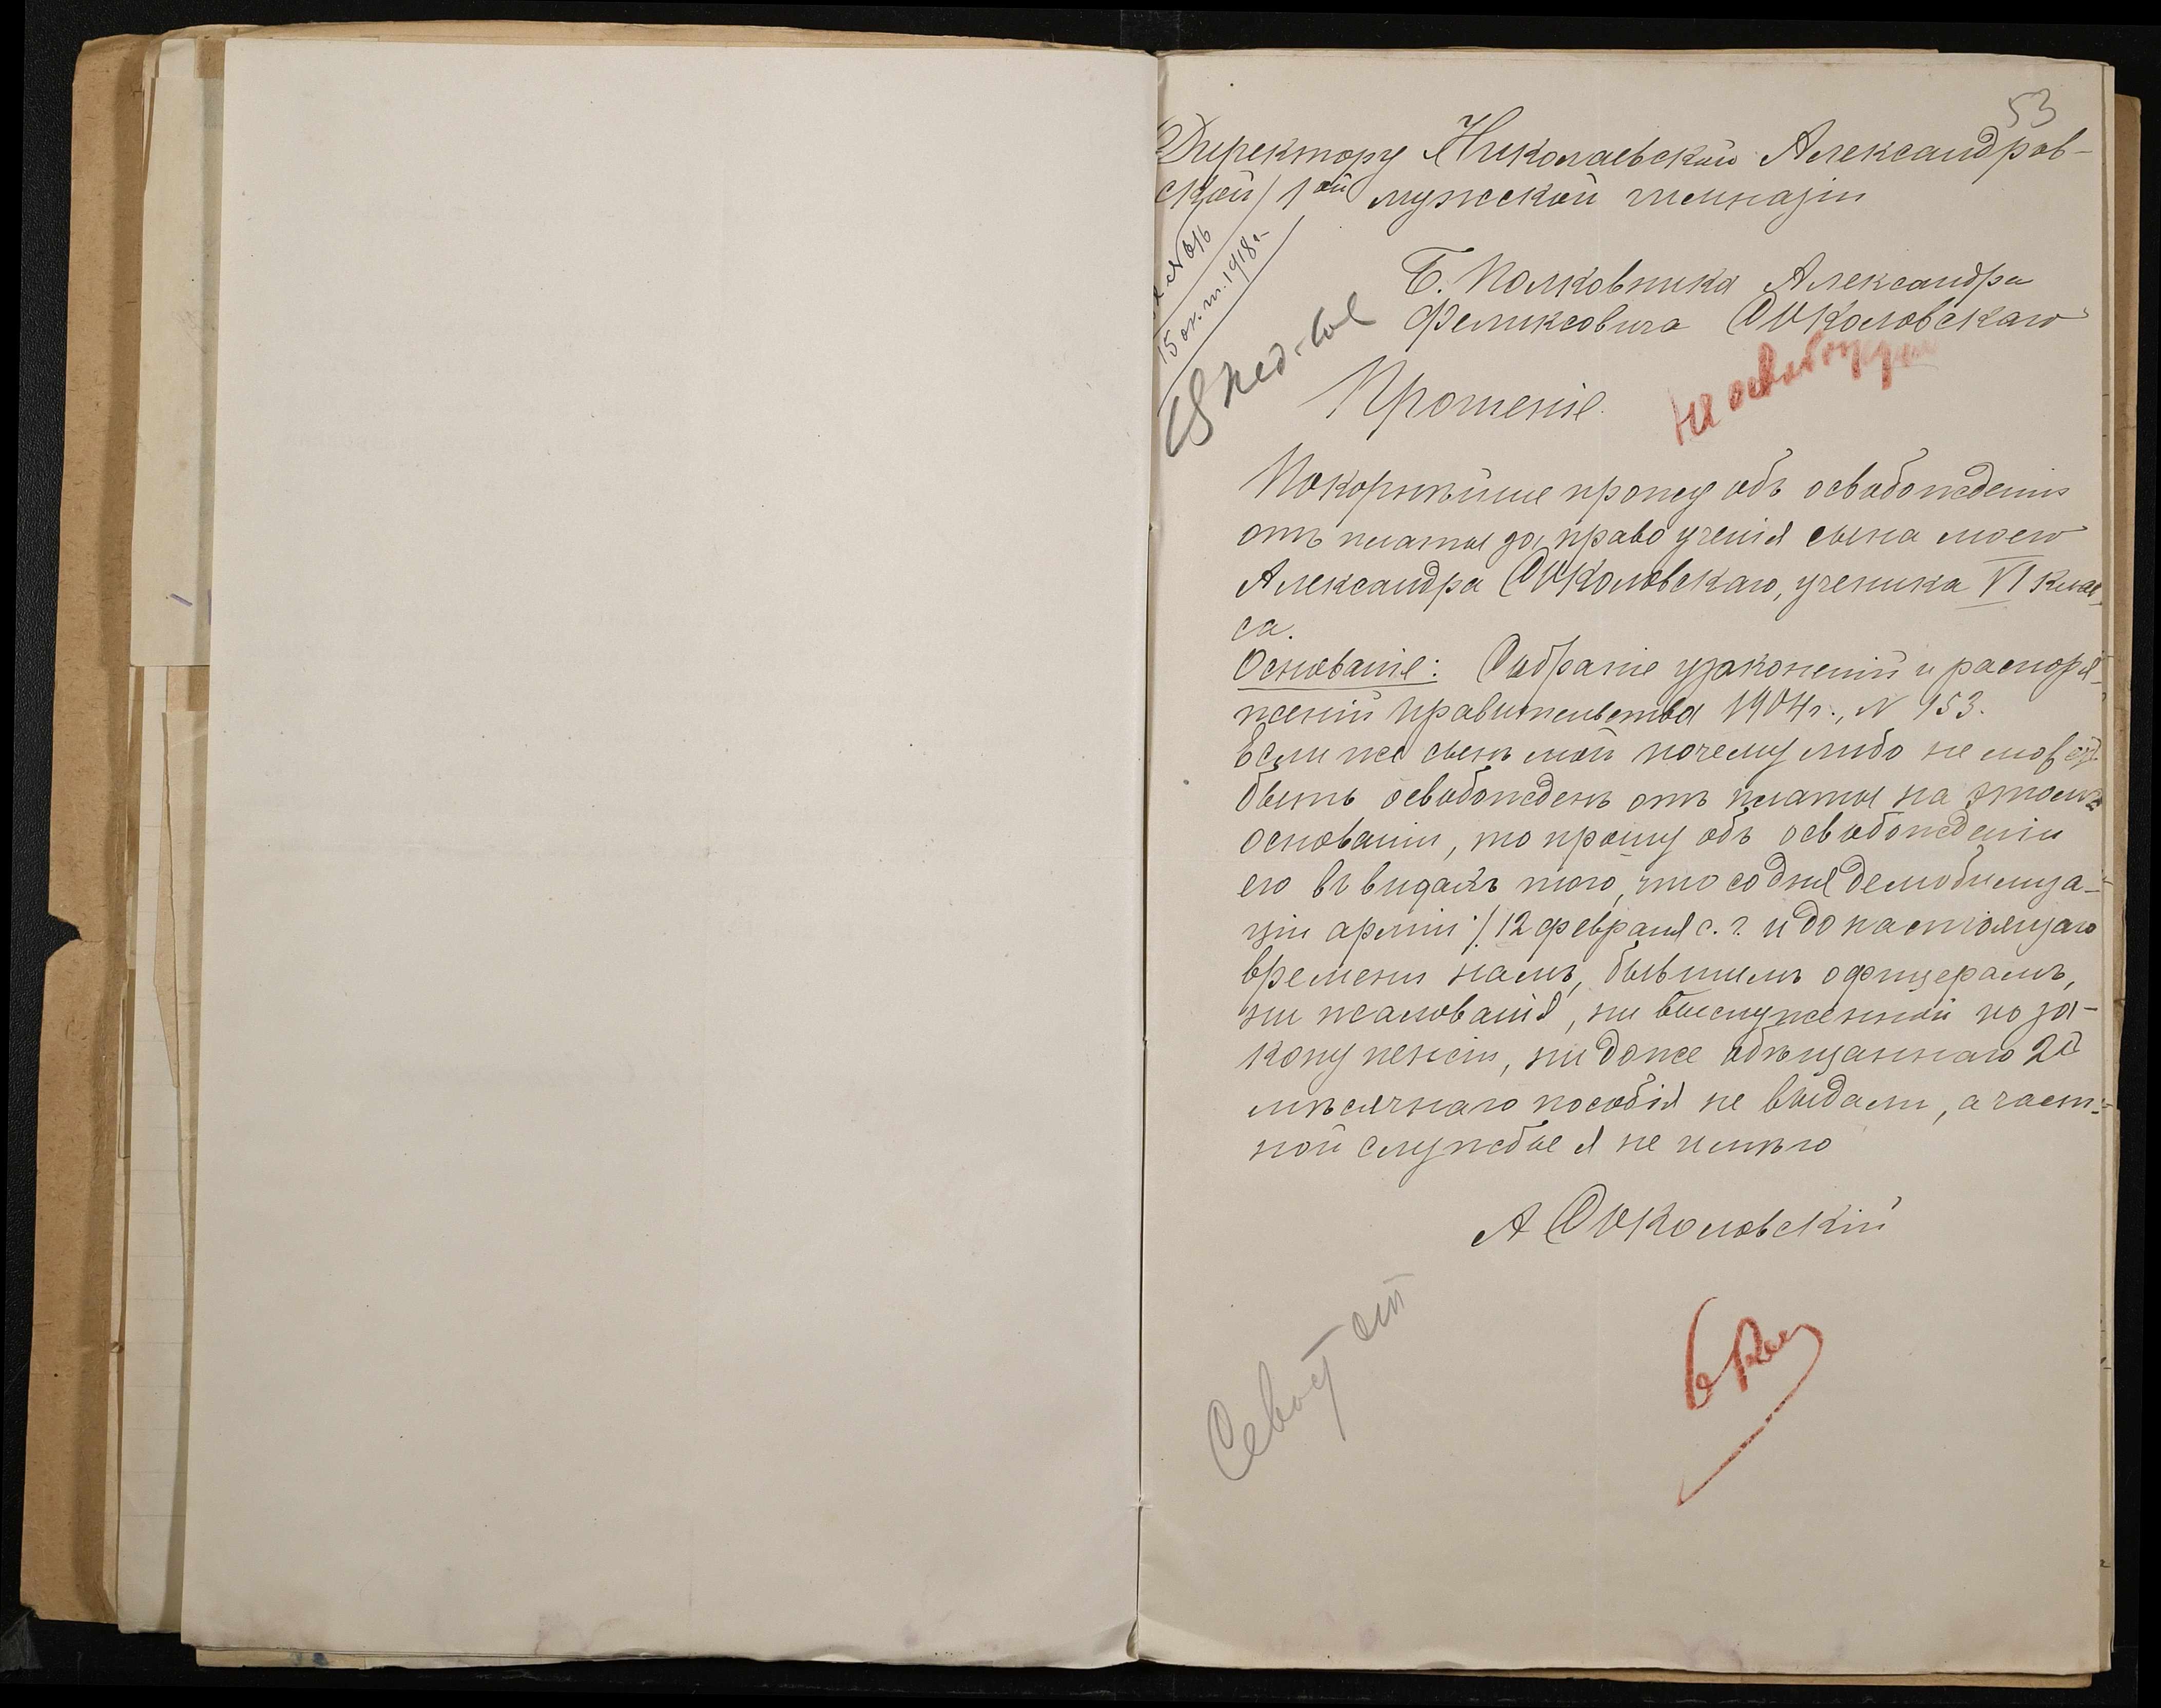 53
Директору Николаевской Александров-
ской / 1ой мужской гимназіи
№ 616
15 окт. 1918 г.
Б. Полковника Александра
Феликсовича Соколовскаго
Прошеніе.
не освобожден
Покорнѣйше прошу объ освобожденіи
отъ платы за право ученія сына моего
Александра Соколовскаго, ученика VI клас-
са.
Основаніе: Собраніе узаконеній и распоря-
женій правительства 1904 г., № 153.
Если же сынъ мой почему либо не может
быть освобожденъ отъ платы на этомъ
основаніи, то прошу объ освобожденіи
его въ видахъ того, что со дня демобилиза-
ціи арміи /. 12 февраля с. г. и до настоящаго
времени намъ, бывшимъ офицерамъ,
ни жалованія, ни выслуженной по за-
кону пенсіи, ни даже обѣщаннаго 2х
мѣсячнаго пособія не выдали, а част-
ной службы я не имѣю
А Соколовскій
6 кл